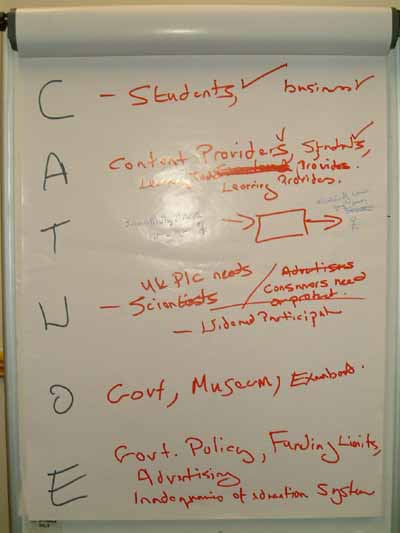 C - Students, business
Content Providers, Students,
A Learning Provides.
Learning Providers.
T
UK PLC needs Advertisers
W - Scientists Consumers need
or protect.
- Widened Participat
O Govt, Museum, Examboard.
Govt. Policy, Funding Limits,
E Advertising
Inadequacies of education System